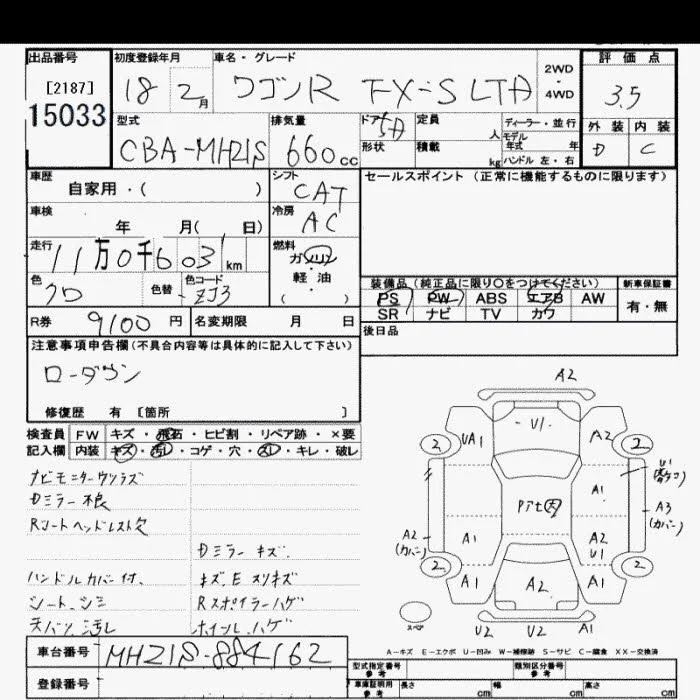 出品番号 初度登録年月 車名・グレード 評価点
[2187] 18 2月 ワゴンR FX-S LTD 2WD・4WD 3.5
15033
型式 排気量 ドア 5D 定員 人 ディーラー・並行 外装 内装
モデル年式 年
CBA-MH21S 660cc 形状 積載 kg ハンドル 左・右 D C
車歴 シフト セールスポイント (正常に機能するものに限ります)
自家用・( ) CAT
車検 冷房
年 月( 日) AC
走行 燃料
11万0千6031km ガソリン
色 色替 色コード 軽油
クロ ZJ3 ( )
装備品 (純正品に限り○をつけてください) 新車保証書
PS PW ABS エアB AW 有・無
SR ナビ TV カワ
R券 9100円 名変期限 月 日 後日品
注意事項申告欄 (不具合内容等は具体的に記入して下さい)
ローダウン
修復歴 有 [箇所 ]
検査員 FW キズ・飛石・ヒビ割・リペア跡・×要
記入欄 内装 キズ・汚レ・コゲ・穴・スレ・キレ・破レ
ナビモニターウツラズ
Dミラー不良
Rシートヘッドレスト欠
Dミラーキズ.
ハンドルカバー付. キズ.E スリキズ
シート.シミ Rスポイラーハゲ
天バリ汚レ ホイール.ハゲ
A2
U1
2 UA1 A2 2
A1 U1
A3
(カバー)
A2
(カバー)
A1 A2
U1
2 A1 A2 A1 2
スペア U2 U2 A1
A-キズ E-エクボ U-凹み W-補修跡 S-サビ C-腐食 XX-交換済
車台番号 MH21S-884162
登録番号
型式指定番号 参考 類別区分番号 参考
車庫証明用 参考 長さ cm 幅 cm 高さ cm